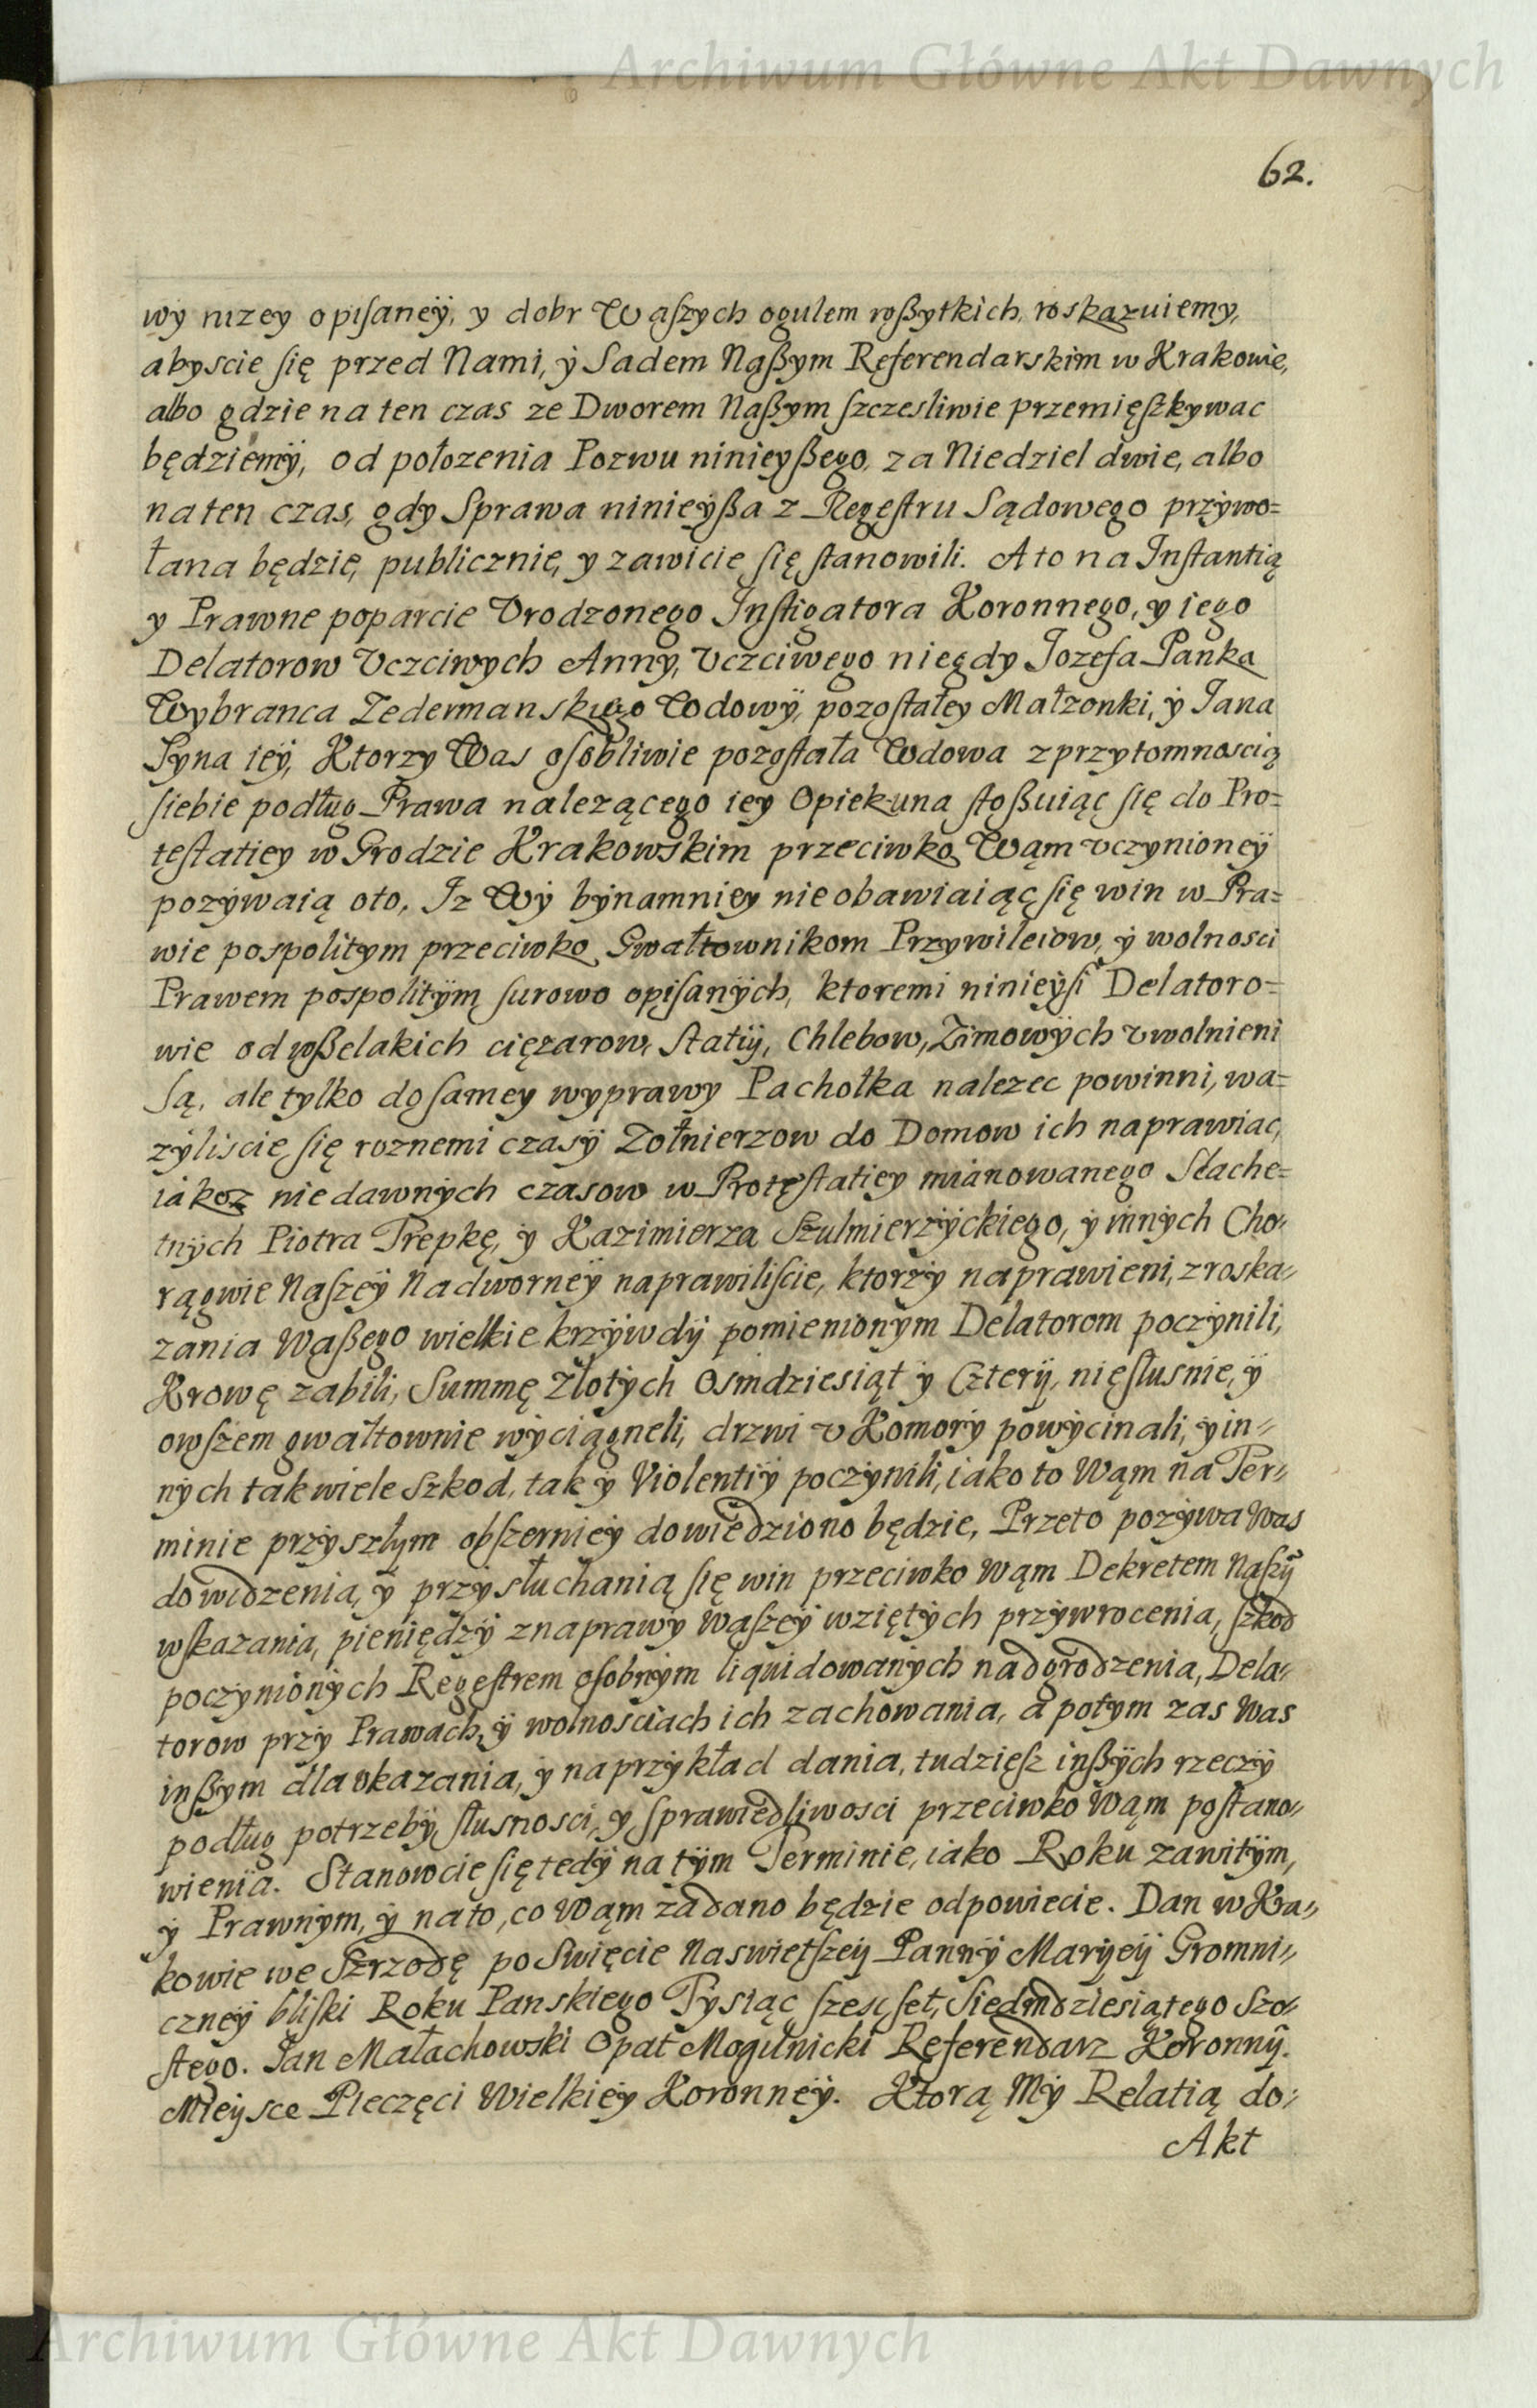 Archiwum Główne Akt Dawnych
62.
wy nizey opisaney, y dobr Wąszych ogulem wßytkich, roskazuiemy,
abyscie się przed Nami, ÿ Sadem Nąßym Referendarskim w Krakowie,
albo gdzie na ten czas ze Dworem Naßym szczesliwie przemięszkywac
będziemÿ, od połozenia Pozwu ninieyßego, za Niedziel dwie, albo
na ten czas, gdy Sprawa ninieyßa z Regestru Sądowego przÿwo=
łana będzie, publicznie, y zawicie się stanowili. A to na Instantią
y Prawne poparcie Vrodzonego Instigatora Koronnego, y iego
Delatorow Vczciwych Anny, Vczciwego niegdy Jozefa Panka
Wybranca Zedermanskiego Wdowÿ, pozostałey Małzonki, ÿ Jana
Syna ieÿ, Ktorzy Was osobliwie pozostała Wdowa z przytomnoscią
siebie podług Prawa nalezącego iey Opiekuna stoßuiąc się do Pro=
testatiey w Grodzie Krakowskim przeciwko Wąm vczynioneÿ
pozÿwaią oto. Iz Wÿ bÿnamniey nie obawiaiąc się win w Pra=
wie pospolitÿm przeciwko Gwałtownikom Przywileiow, ÿ wolnosci
Prawem pospolitÿm surowo opisanÿch, ktoremi ninieÿsi Delatoro=
wie od wßelakich cięzarow, Statiÿ, Chlebow, Zimowÿch vwolnieni
Są, ale tylko do samey wyprawy Pachołka nalezec powinni, wa=
zÿliscie się roznemi czasÿ Zołnierzow do Domow ich naprawiac,
iakoz niedawnÿch czasow w Protęstatiey mianowanego Słache=
tnÿch Piotra Trepkę, ÿ Kazimierza Szulmierzÿckiego, ÿ innÿch Cho=
rągwie Naszeÿ Nadworneÿ naprawiliscie, ktorzÿ naprawieni, z roska=
zania Waßego wielkie krzÿwdÿ pomienionym Delatorom poczÿnili,
Krowę zabili, Summę Złotÿch Osmdziesiąt ÿ Czterÿ, niesłusnie, ÿ
owszem gwałtownie wÿciągneli, drzwi v Komorÿ powÿcinali, ÿ in=
nÿch tak wiele szkod, tak ÿ Violentiÿ poczÿnili, iako to Wąm na Ter=
minie przÿszłÿm obszernieÿ dowiedziono będzie, Przeto pozÿwa Was
do widzenia, ÿ przÿsłuchanią się win przeciwko Wąm Dekretem Naszÿ
wskazania, pieniędzÿ z naprawÿ waszeÿ wziętÿch przÿwrocenia, szkod
poczÿnionÿch Regestrem osobnÿm liquidowanÿch nadgrodzenia, Dela=
torow przÿ Prawach, ÿ wolnosciach ich zachowania, a potÿm zas Was
inßÿm dla vkazania, ÿ na przÿkład dania, tudziesz inßÿch rzeczÿ
podług potrzebÿ, słusnosci, y sprawiedliwosci przeciwko Wąm postano=
wienia. Stanowcie się tedÿ na tÿm Terminie, iako Roku zawitÿm,
ÿ Prawnÿm, ÿ na to, co Wąm zadano będzie odpowiecie. Dan w Kra=
kowie we Szrzodę po Swięcie Naswiętszeÿ Pannÿ Marÿeÿ Gromni=
czneÿ bliski Roku Panskiego Tysiąc szescset, Siedmdziesiątego Szo=
stego. Jan Małachowski Opat Mogilnicki Referendarz Koronnÿ.
Mieysce Pieczęci Wielkieÿ Koronneÿ. Ktorą Mÿ Relatią do=
Akt
Archiwum Główne Akt Dawnych